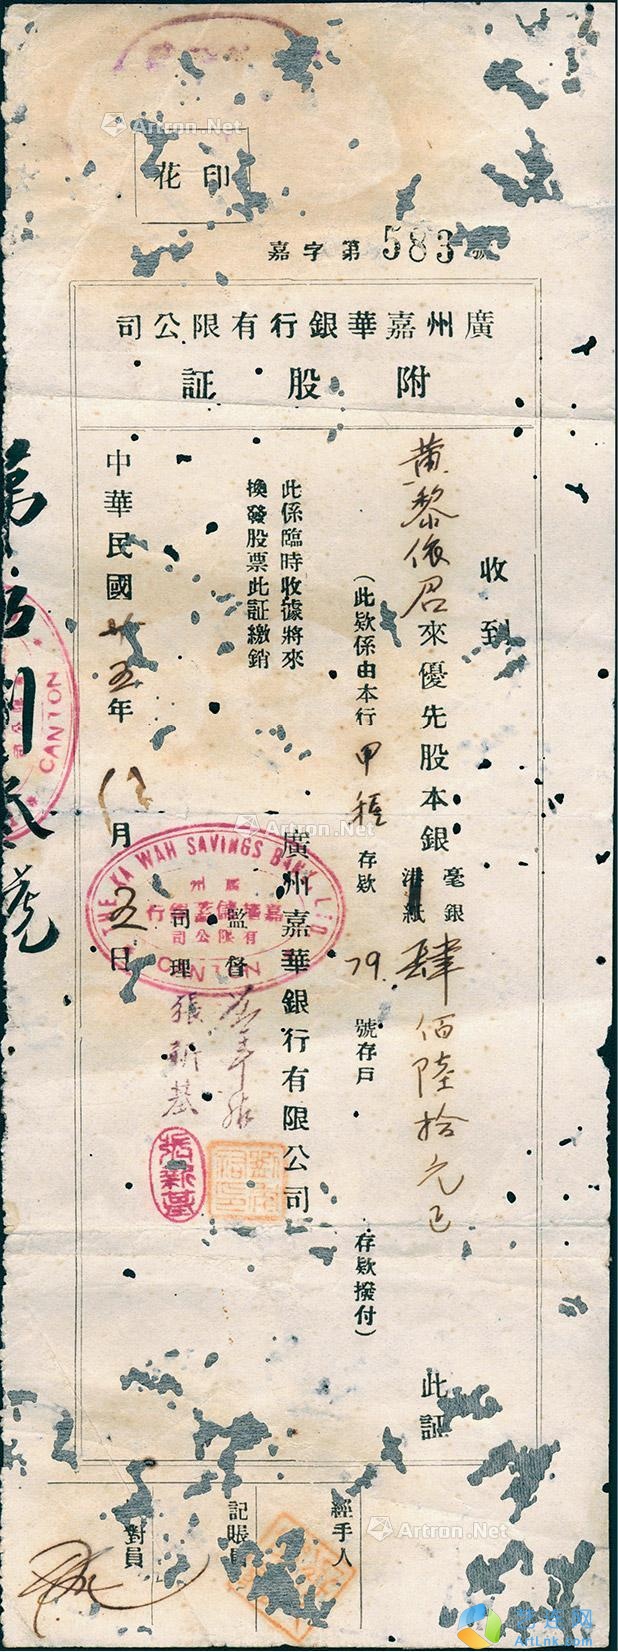 印花
嘉字第583號
廣州嘉華銀行有限公司
附股証
收到
黃黎依召來優先股本銀毫銀港紙肆佰陸拾元正
(此欵係由本行甲種存欵79.號存戶存欵撥付)
此証
此係臨時收據將來
換發股票此証繳銷
廣州嘉華銀行有限公司
監督
司理張新基
張新基
中華民國廿五年月五日
THE KA WAH SAVINGS BANK LTD
廣州
嘉華儲蓄銀行
有限公司
CANTON
CANTON
經手人
記賬員
對員
Artron.Net
Artron.Net
Artron.Net
Artron.Net
ArtLnk.com